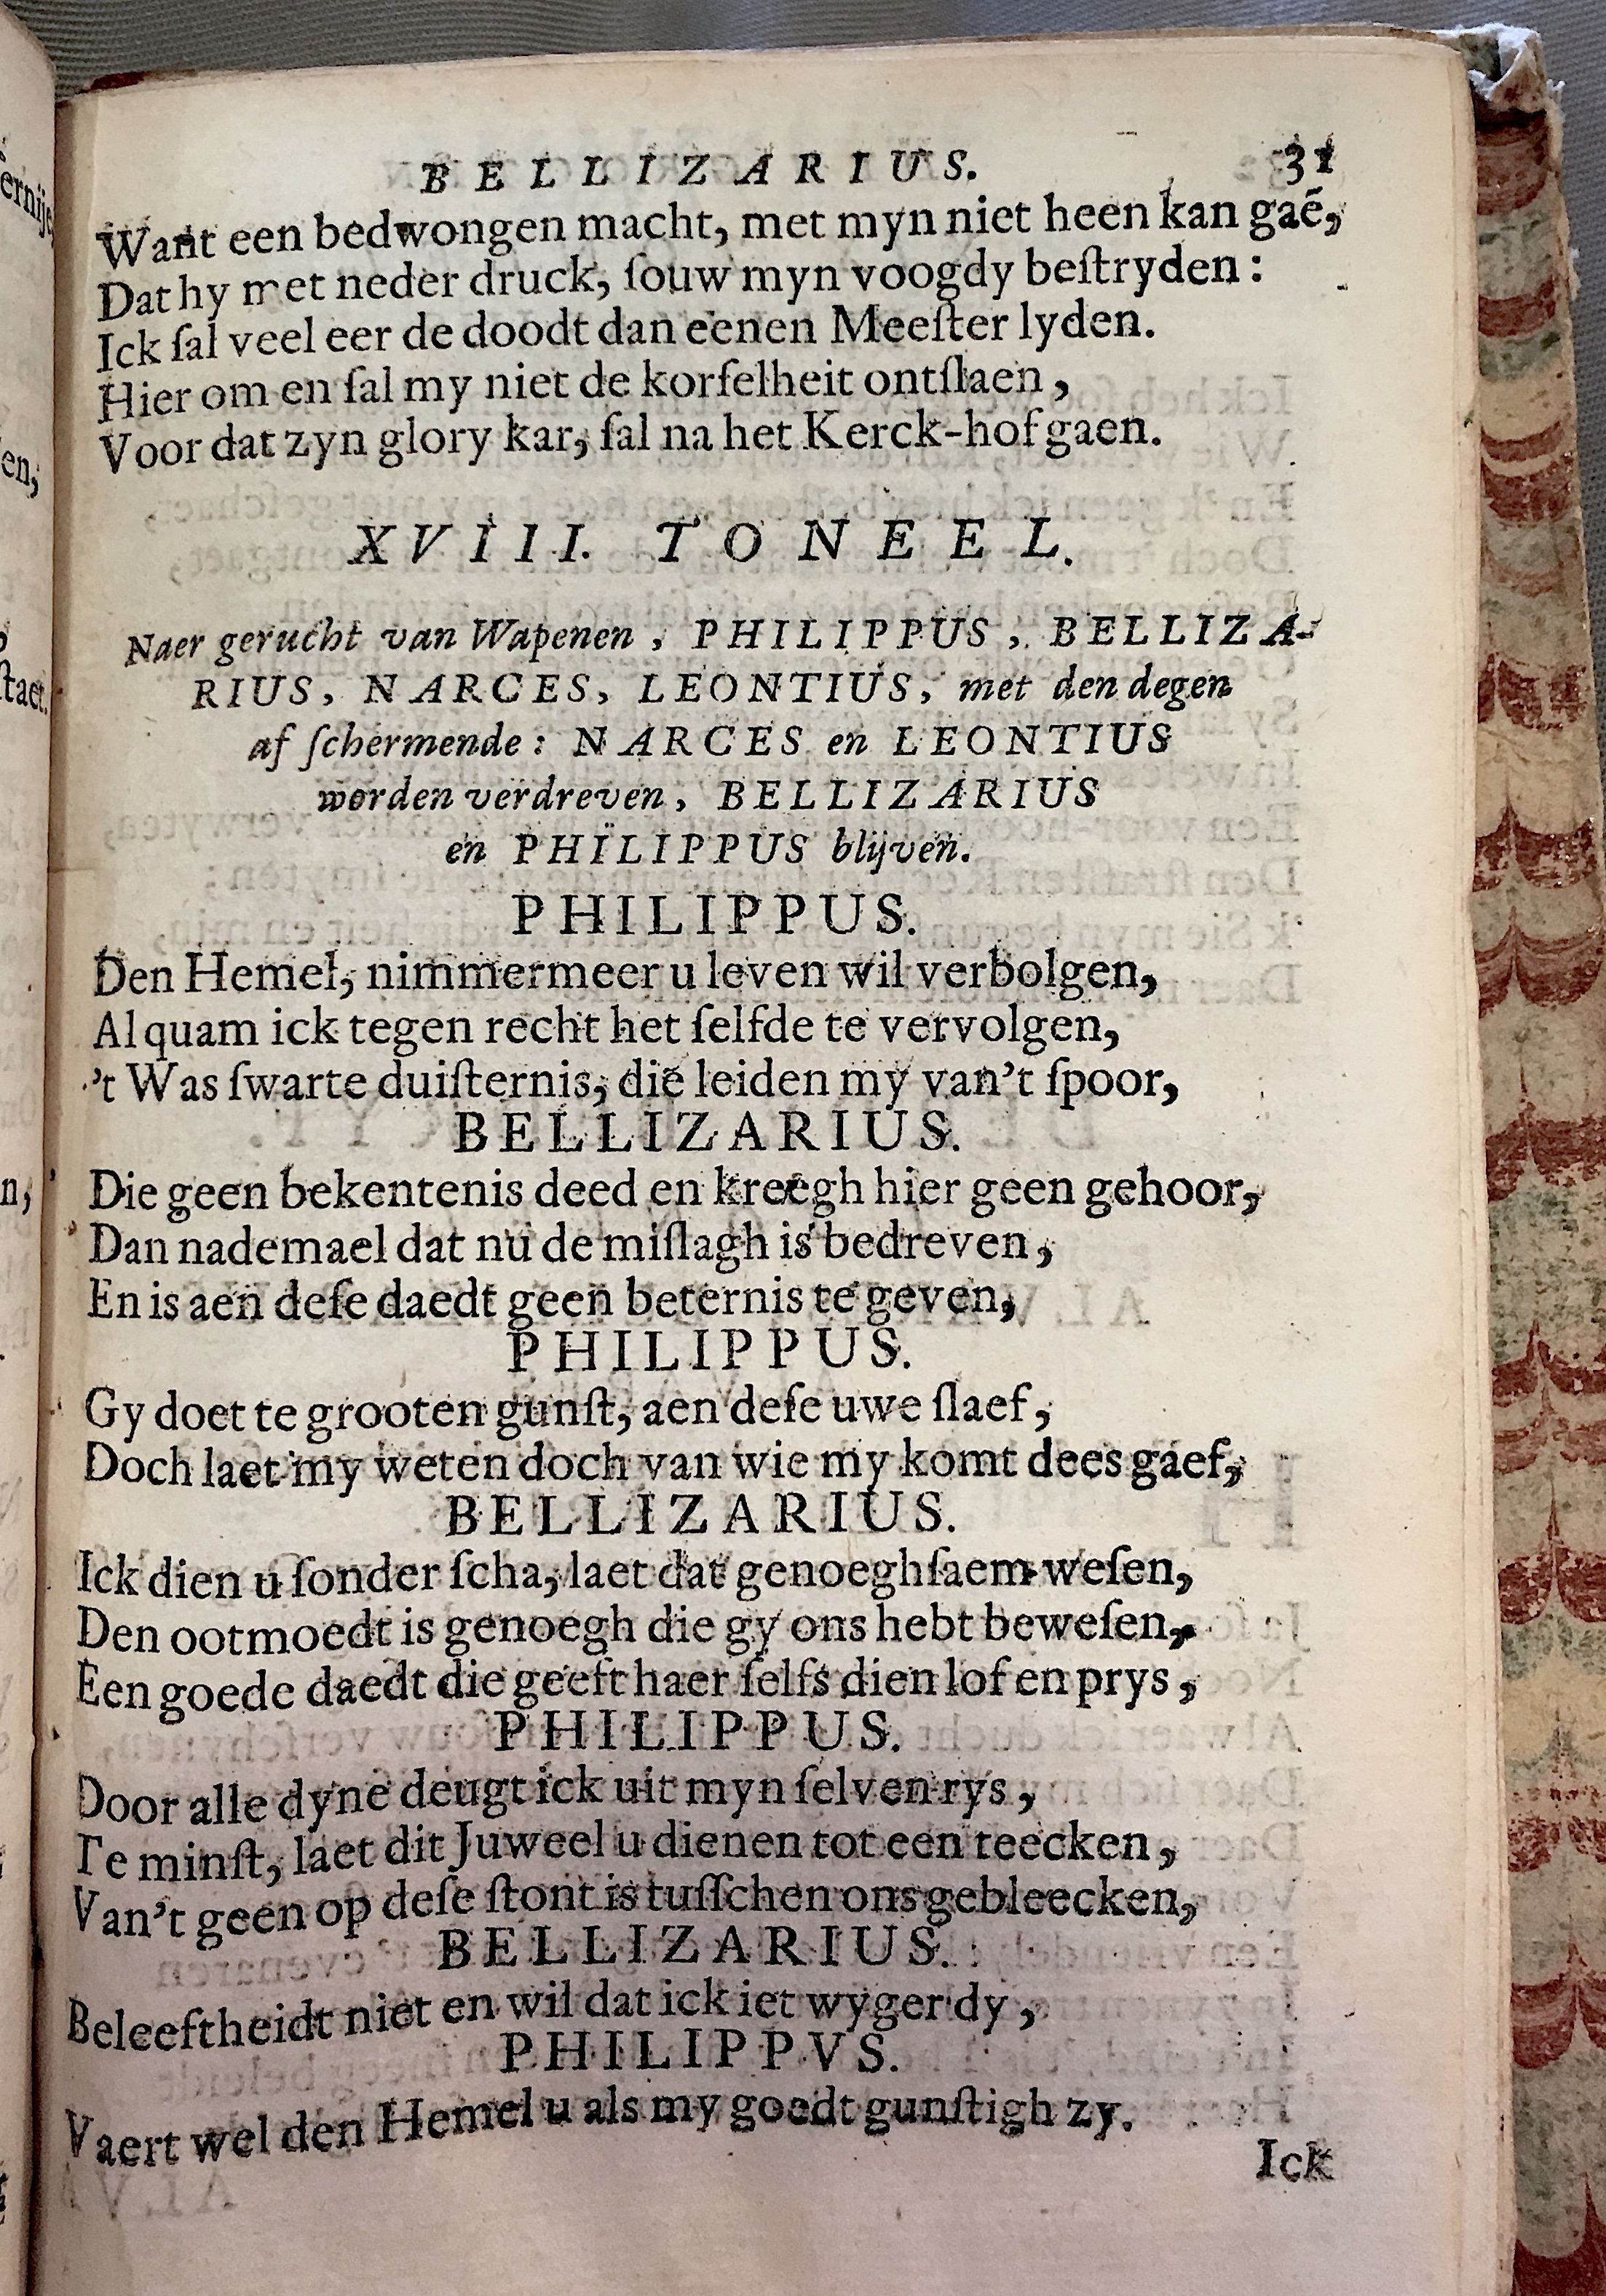 BELLIZARIUS. 31
Want een bedwongen macht, met myn niet heen kan gaē,
Dat hy met neder druck, ſouw myn voogdy beſtryden:
Ick ſal veel eer de doodt dan eenen Meeſter lyden.
Hier om en ſal my niet de korſelheit ontſlaen,
Voor dat zyn glory kar, ſal na het Kerck-hof gaen.
XVIII. TONEEL.
Naer gerucht van Wapenen, PHILIPPUS, BELLIZA-
RIUS, NARCES, LEONTIUS, met den degen
af ſchermende: NARCES en LEONTIUS
worden verdreven, BELLIZARIUS
en PHILIPPUS blijven.
PHILIPPUS.
Den Hemel, nimmermeer u leven wil verbolgen,
Al quam ick tegen recht het ſelfde te vervolgen,
't Was ſwarte duiſternis, die leiden my van't ſpoor,
BELLIZARIUS.
Die geen bekentenis deed en kreegh hier geen gehoor,
Dan nademael dat nu de miſlagh is bedreven,
En is aen deſe daedt geen beternis te geven,
PHILIPPUS.
Gy doet te grooten gunſt, aen deſe uwe ſlaef,
Doch laet my weten doch van wie my komt dees gaef,
BELLIZARIUS.
Ick dien u ſonder ſcha, laet dat genoeghſaem weſen,
Den ootmoedt is genoegh die gy ons hebt beweſen,
Een goede daedt die geeft haer ſelfs dien lof en prys,
PHILIPPUS.
Door alle dyne deugt ick uit myn ſelven rys,
Te minſt, laet dit Juweel u dienen tot een teecken,
Van't geen op deſe ſtont is tuſſchen ons gebleecken,
BELLIZARIUS.
Beleeftheidt niet en wil dat ick iet wyger dy,
PHILIPPVS.
Vaert wel den Hemel u als my goedt gunſtigh zy.
Ick